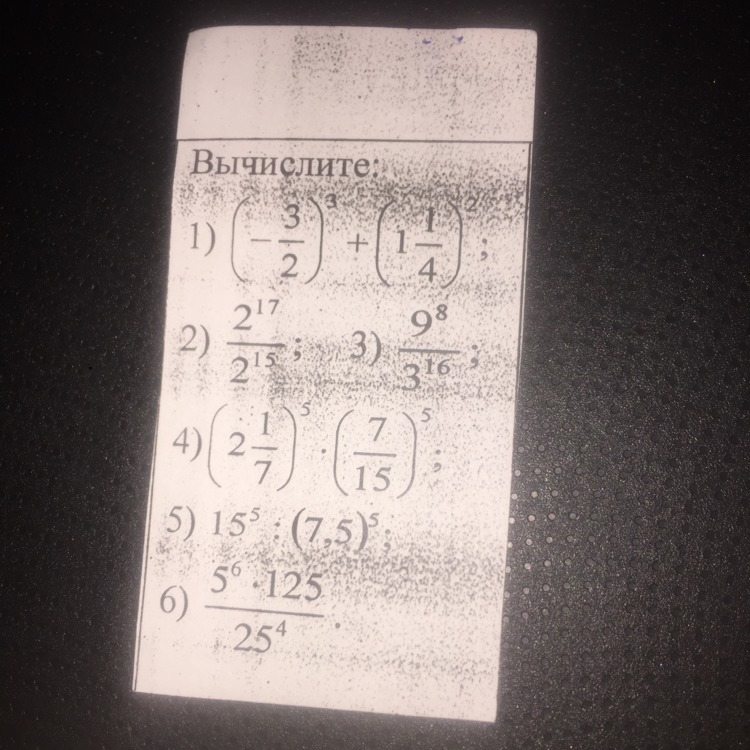 Вычислите:
1) (−3/2)³ + (1 1/4)²;
2) 2¹⁷/2¹⁵; 3) 9⁸/3¹⁶;
4) (2 1/7)⁵ · (7/15)⁵;
5) 15⁵ : (7,5)⁵;
6) 5⁶ · 125/25⁴.